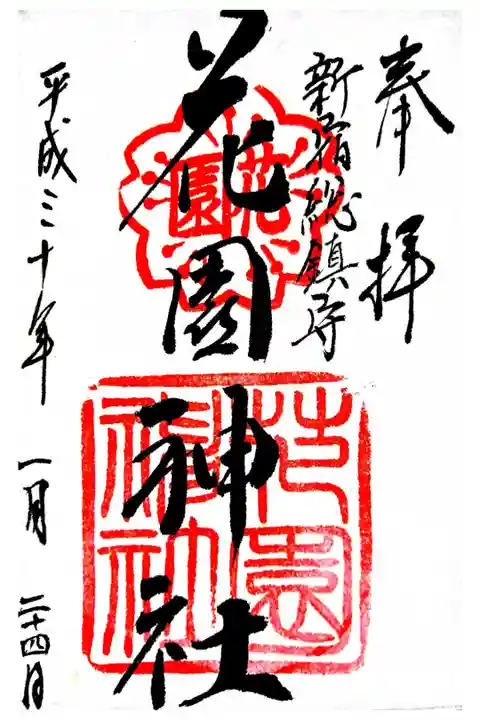 奉拝
新宿総鎮守
花園神社
花園
花園神社
平成三十年 一月 二十四日